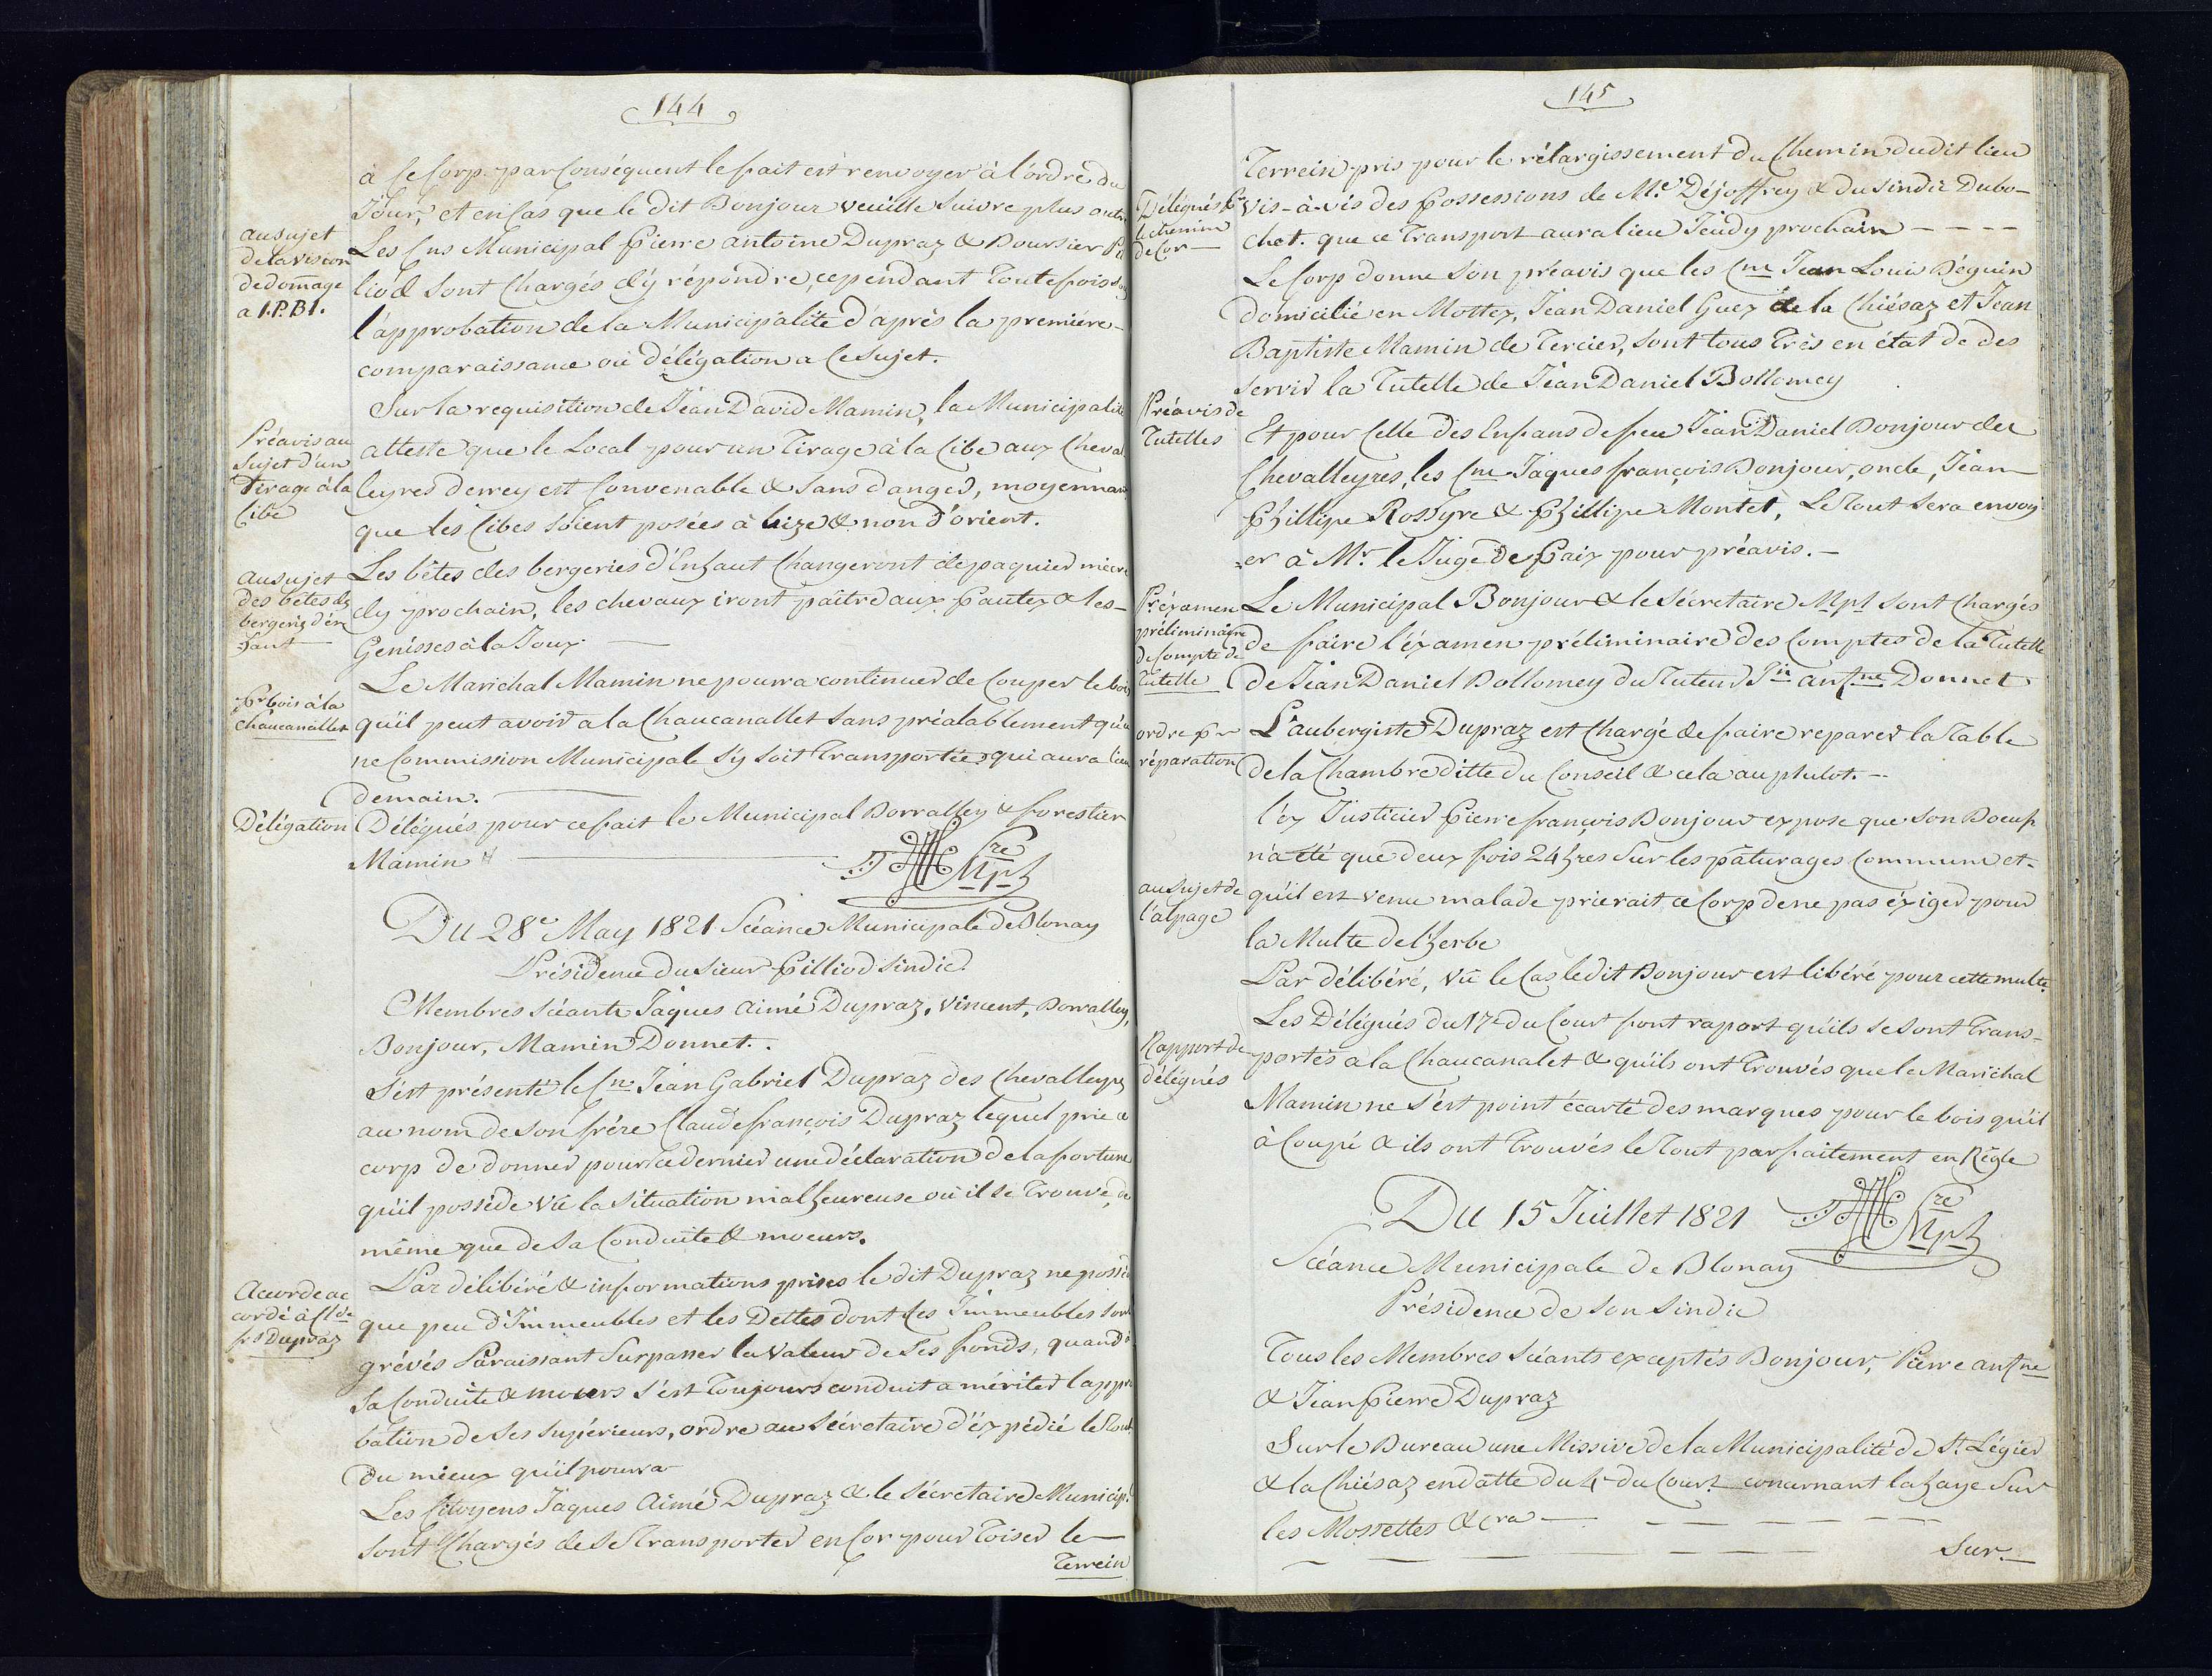 144
à ce Corp par Conséquent le fait est renvoyer à l'ordre du
Jour, et en Cas que le dit Bonjour veuille Suivre plus outre
au sujet
de la vision
de domage
a J.P.B1.
Les Cns Municipal Pierre antoine Dupraz & Boursier Pil
liod Sont Chargés d'y répondre, cependant Toutefois
l'approbation de la Municipalité d'après la première
comparaissance ou délégation a ce Sujet.
Préavis au
Sujet d'un
Tirage à la
Cibe
Sur la requisition de Jean David Mamin, la Municipalité
atteste que le Local pour un Tirage à la Cibe aux Cheval
leyres derrey est Convenable & Sans danger, moyennant
que les Cibes Soient posées à bize & non d'orient.
au sujet
des bêtes des
bergeries d'en
haut
Les bêtes des bergeries d'Enhaut Changeront de paquier mécre
dy prochain, les chevaux iront paître aux Pautex & les
Genisses à la Joux
Pr bois à la
Chaucanallet
Le Marichal Mamin ne pourra continuer de Couper le bois
qu'il peut avoir a la Chaucanallet Sans préalablement qu'u
ne Commission Municipale S'y Soit Transportée qui aura lieu
demain.
Délégation
Délégués pour ce fait le Municipal Borralley & forestier
Mamin
Cre
Mpl
Du 28e May 1821 Scéance Municipale de Blonay
Présidence du Sieur Pilliod Sindic.
Membres Scéants Jaques Aimé Dupraz, Vincent, Borralley,
Bonjour, Mamin Donnet.
S'est présenté le Cn Jean Gabriel Dupraz des Chevalleyres
au nom de son frère Claude françois Dupraz lequel prie ce
corp de donner pour ce dernier une déclaration de la fortune
qu'il possède vû la Situation malheureuse où il se Trouve, de
même que de Sa Conduite & moeurs.
Acorde ac
cordé à Clde
frs Dupraz
Par délibéré & informations prises le dit Dupraz ne possède
que peu d'Immeubles et les Dettes dont Ses Immeubles Sont
grévés Paraissant Surpasser la Valeur de Ses fonds, quand à
Sa Conduite & moeurs S'est Toujours conduit a mériter l'appro
bation de Ses Supérieurs, ordre au Sécretaire d'éxpédié le Tout
du mieux qu'il pourra
Les Citoyens Jaques Aimé Dupraz & le Sécretaire Municip.
Sont Chargés de Se Transporter en Cor pour Toiser le
Terrein
145
Terrein pris pour le rélargissement du Chemin dudit lieu
Délégués Pr
le chemin
de Cor
Vis-à-vis des Possessions de Mr Déjoffrey & du Sindic Dubo-
chet. que ce Transport aura lieu Jeudy prochain
Préavis de
Tutelles
Le Corp donne Son préavis que les Cns Jean Louis Béguin
domicilié en Mottex, Jean Daniel Guex de la Chiésaz et Jean
Baptiste Mamin de Tercier, Sont tous Très en état de des
servir la Tutelle de Jean Daniel Bollomey
Et pour Celle des Enfans de feu Jean Daniel Bonjour des
Chevalleyres, les Cns Jaques françois Bonjour, oncle, Jean
Phillipe Rossyre & Phillipe Montet, Le Tout Sera envoy
er à Mr. le Juge de Paix pour préavis.
Pr éxamen
préliminaire
de Compte de
Tutelle
Le Municipal Bonjour & le Sécretaire Mpl Sont Chargés
de faire l'éxamen préliminaire des Comptes de la Tutelle
de Jean Daniel Bollomey du Tuteur Jn antne Donnet
ordre pr
réparation
L'aubergiste Dupraz est Chargé de faire reparer la Table
de la Chambre ditte du Conseil & cela au plutot.
l'éx Justicier Pierre françois Bonjour expose que Son Boeuf
n'a été que deux fois 24 hres Sur les pâturages Commune et
au Sujet de
l'alpage
qu'il est Venu malade prierait ce Corp de ne pas éxiger pour
la Multe de l'herbe
Par délibéré, Vû le Cas le dit Bonjour est libéré pour cette multe.
Rapport de
délégués
Les Délégués du 17e du Court font raport qu'ils Se Sont Trans-
portés a la Chaucanalet & qu'ils ont Trouvés que le Marichal
Mamin ne S'est point écarté des marques pour le bois qu'il
à Coupé & ils ont Trouvés le Tout parfaitement en Règle
Cre
Mpl
Du 15 Juillet 1821
Scéance Municipale de Blonay
Présidence de Son Sindic
Tous les Membres Scéants exceptés Bonjour, Pierre antne
& Jean Pierre Dupraz
Sur le Bureau une Missive de la Municipalité de St. Légier
& la Chiésaz en datte du 4e du Court concernant la haye Sur
les Mossettes & cra
Sur.